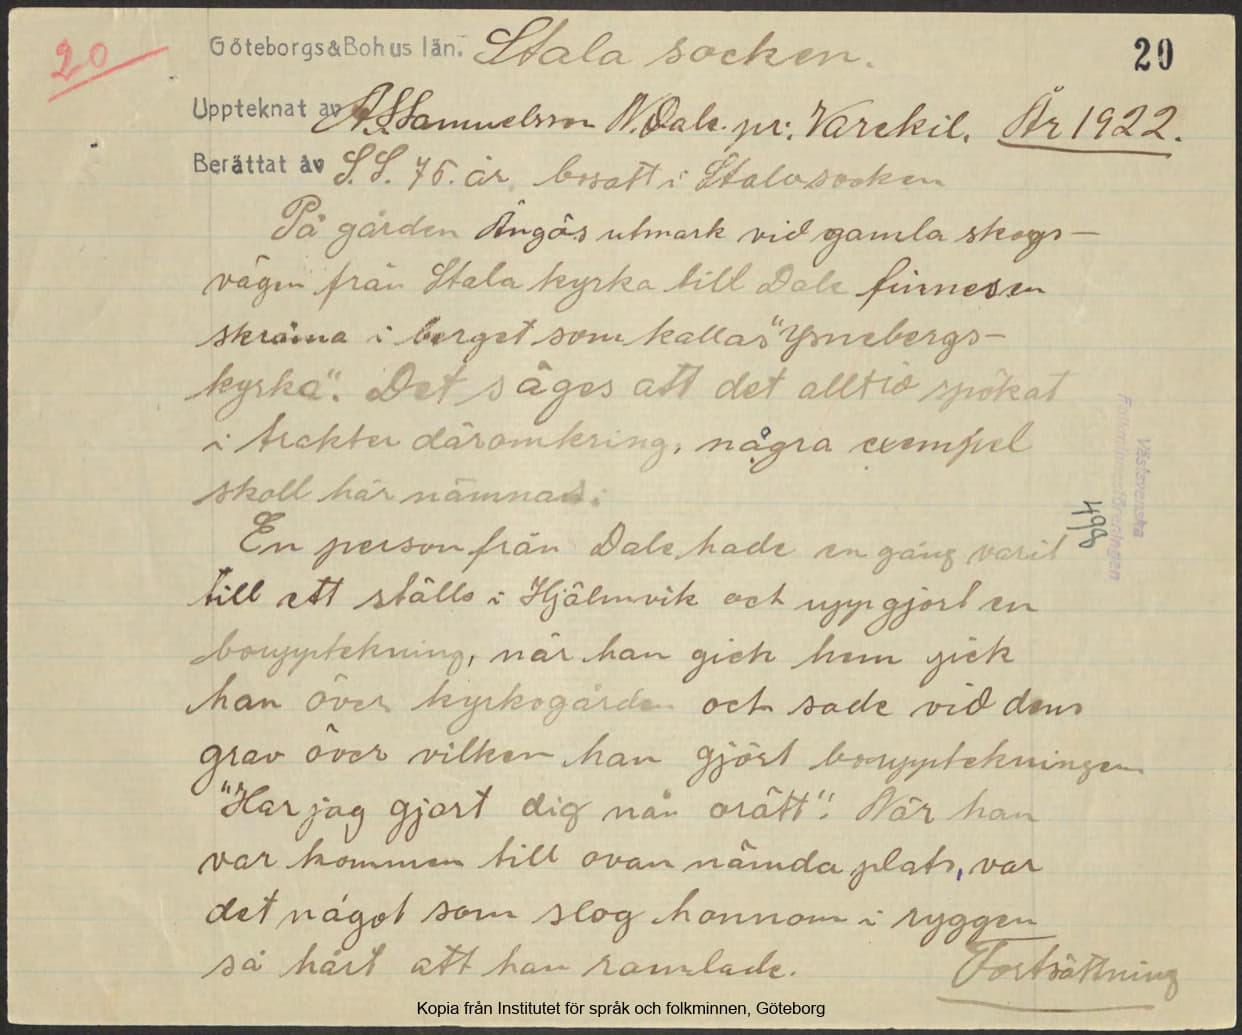 20
Göteborgs&Bohus län. Stala socken. 20
Upptecknat av A.S. Samuelsson N. Dale. pr: Varekil. År 1922.
Berättat av S.S. 76. år. bosatt i Stala socken
På gården Ängås utmark vid gamla skogs-
vägen från Stala kyrka till Dale finnes en
skråma i berget som kallas "Ysnebergs-
kyrka". Det säges att det alltid spökat
i trakter däromkring, några exempel
skall här nämnas:
En person från Dale hade en gång varit
till ett ställe i Hjälmvik och uppgjort en
bouppteckning, när han gick hem gick
han över kyrkogården och sade vid dens
grav över vilken han gjört bouppteckningen
"Har jag gjort dig nån orätt". När han
var kommen till ovan nämda plats, var
det något som slog honnom i ryggen
så hårt att han ramlade. Fortsättning
Västsvenska
Folkminnesföreningen
498
Kopia från Institutet för språk och folkminnen, Göteborg